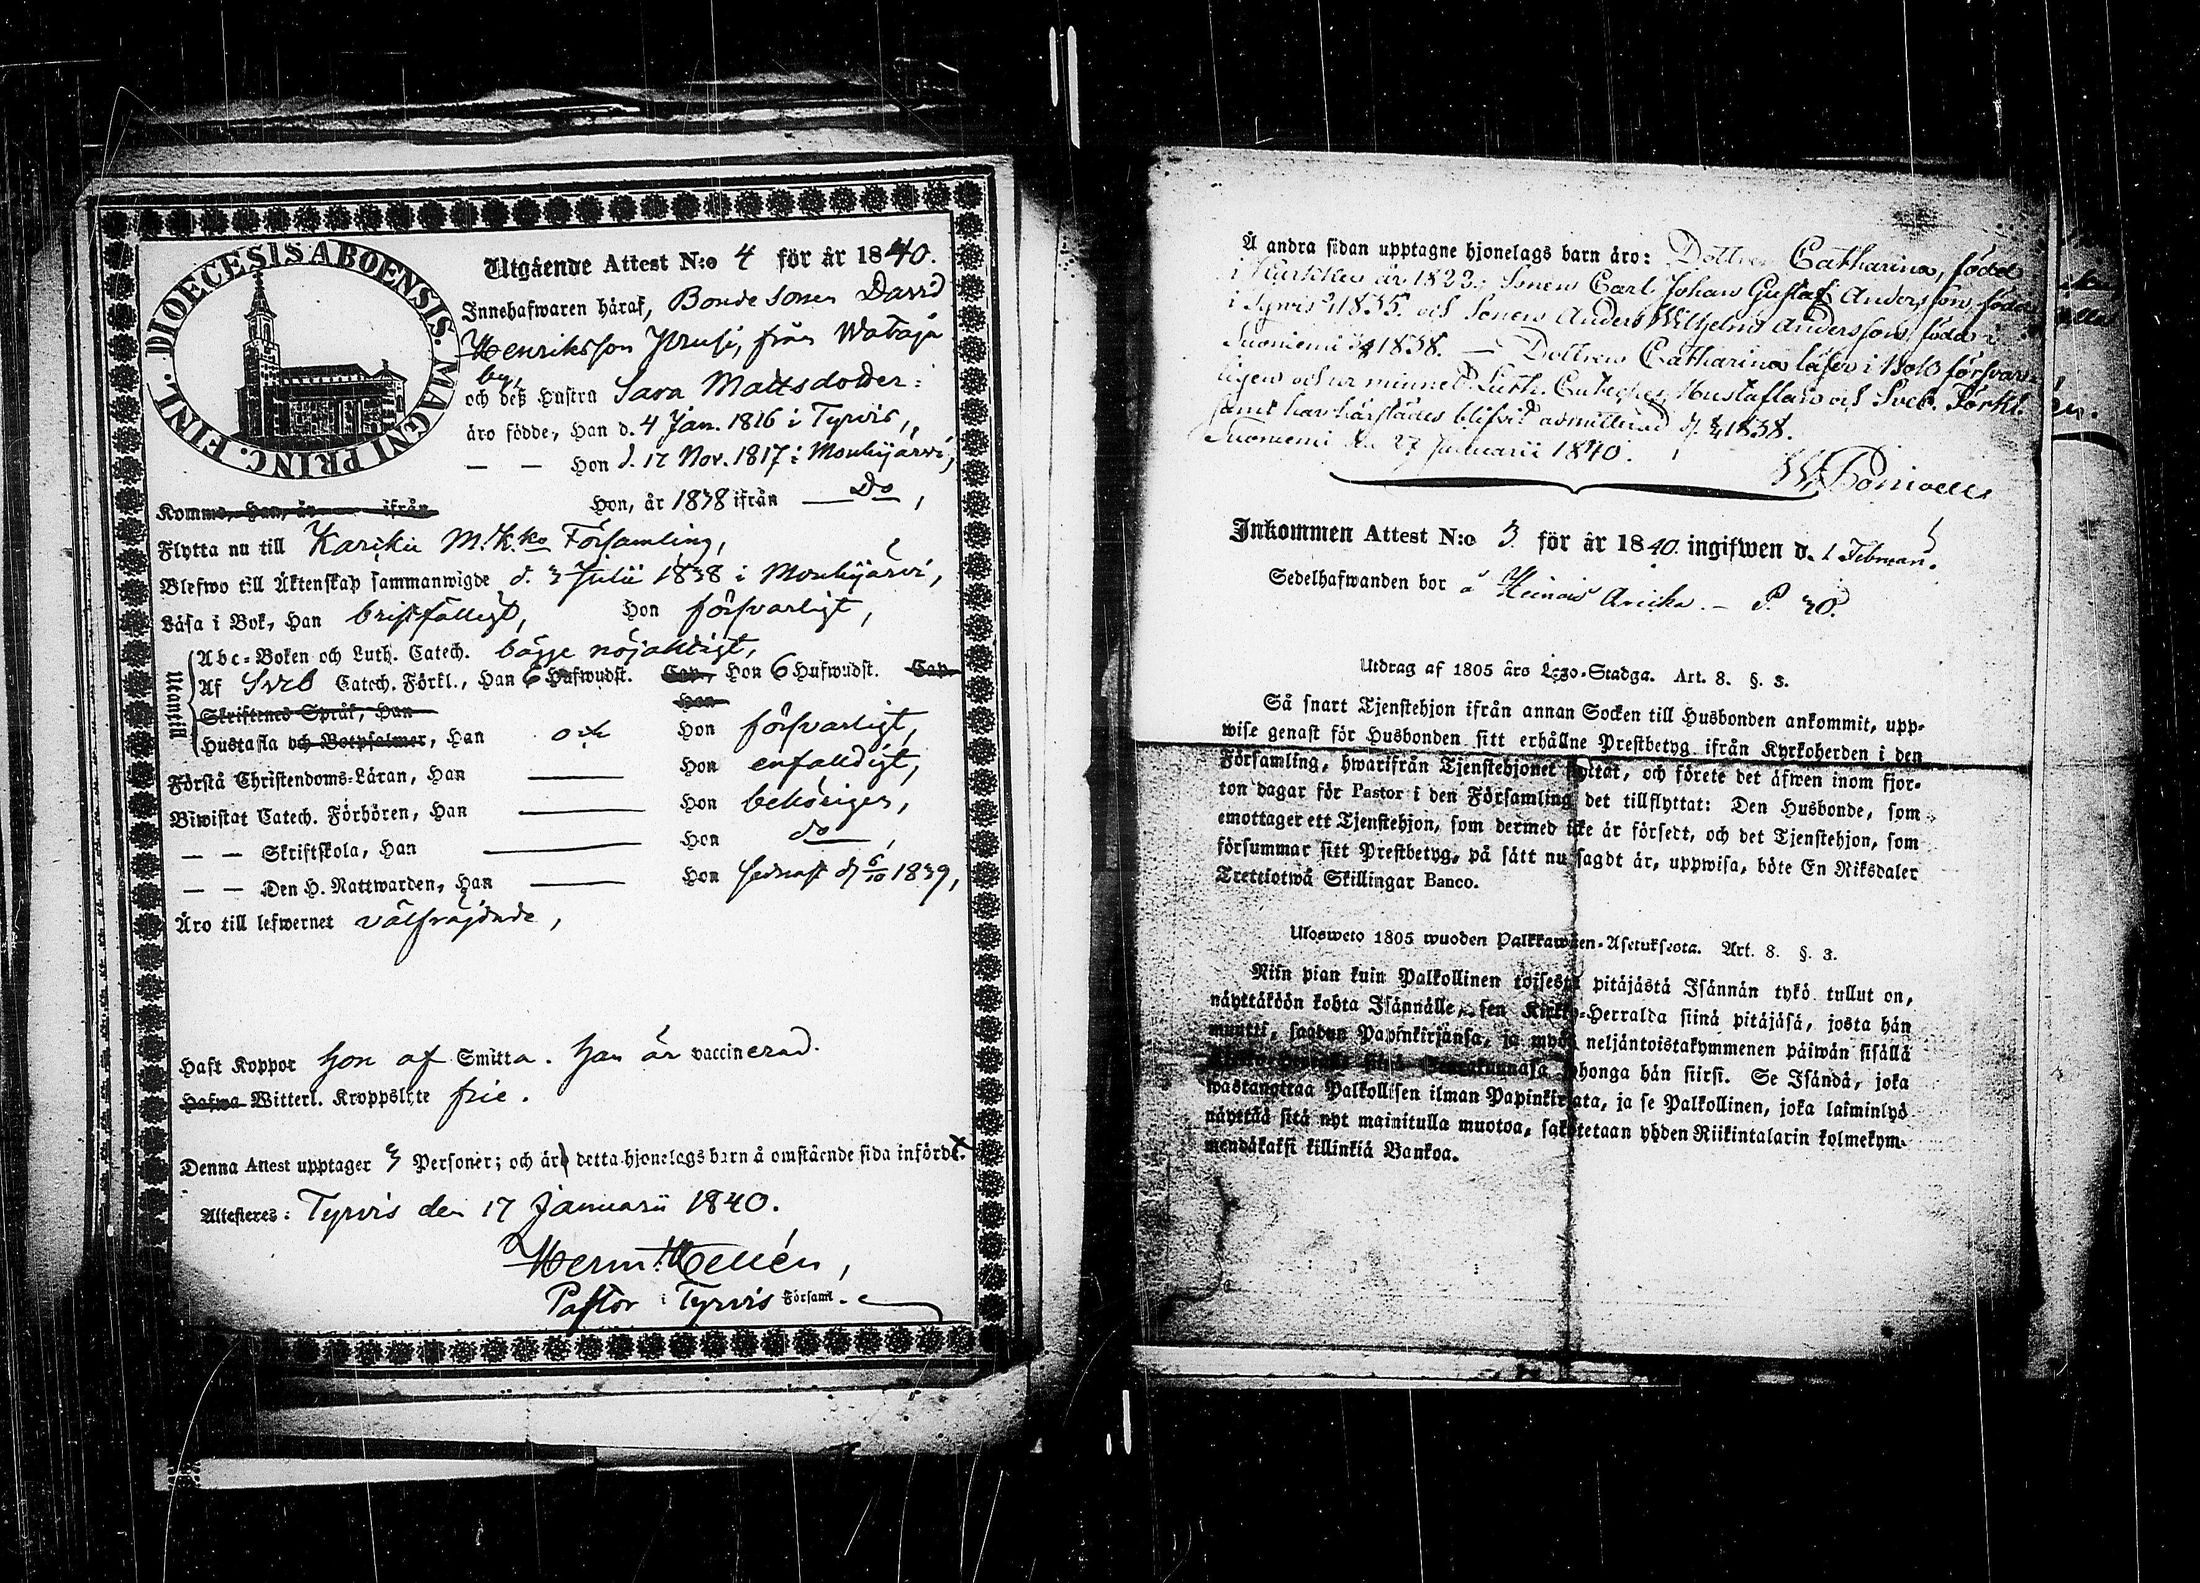 DIOECESIS ABOENSIS. MAGNI PRINC. FINL.
Utgående Attest N:o 4 för år 1840.
Innehafwaren häraf, Bonde Sonen David
Henriksson, från Wataja
by,
och deß Hustru Sara Mattsdotter:
äro födde, Han d. 4 Jan. 1816 i Tyrvis,
— — Hon d. 12 Nov. 1817 i Mouhijärvi,
Komme, Han, år ifrån Hon, år 1838 ifrån Do,
Flytta nu till Karkku M.K.ko Församling,
Blefwo till Äktenskap sammanwigde d. 3 Julii 1838 i Mouhijärvi,
Läsa i Bok, Han bristfälligt, Hon försvarligt,
Utantill
Abc-Boken och Luth. Catech. bägge nöjaktigt,
Af Sveb Catech. Förkl., Han 6 Hufwudst. Cap., Hon 6 Hufwudst. Cap.
Skriftenes Språk, Han Hon
Hustafla och Botpsalmer, Han och Hon försvarligt,
Förstå Christendoms-Läran, Han — Hon enfaldigt,
Biwistat Catech. Förhören, Han — Hon behörigen,
— — Skriftskola, Han — Hon do,
— — Den H. Nattwarden, Han — Hon sednast d. 6/10 1839,
Äro till lefwernet välfräjdade,
Haft Koppor hon af Smitta. han är vaccinerad.
Hafwa Witterl. Kroppslyte frie.
Denna Attest upptager 3 Personer; och äro detta hjonelags barn å omstående sida införde.
Attesteras: Tyrvis den 17 Januarii 1840.
Herm. Hellén,
Pastor i Tyrvis Församl.
Å andra sidan upptagne hjonelags barn äro: Dottren Catharina, född
i år 1822; Sonen Carl Johan Gustaf Andersson, född
i Tyrvis 1835. och Sonen Anders Wilhelm Andersson, född i
Suoniemi 1838. — Dottren Catharina läser i Bok försvar-
ligen och ur minnet Luth. Catechesen, Hustaflan och Sveb. Förkl.
samt har härstädes blifvit admitterad 1838.
Suoniemi den 27 Januarii 1840.
Inkommen Attest N:o 3. för år 1840. ingifwen d. 1 Februari.
Sedelhafwanden bor å Heinois — P. 30.
Utdrag af 1805 års Lego-Stadga. Art. 8. §. 3.
Så snart Tjenstehjon ifrån annan Socken till Husbonden ankommit, upp-
wise genast för Husbonden sitt erhållne Prestbetyg ifrån Kyrkoherden i den
Församling, hwarifrån Tjenstehjonet flyttat, och förete det äfwen inom fjor-
ton dagar för Pastor i den Församling det tillflyttat: Den Husbonde, som
emottager ett Tjenstehjon, som dermed icke är försedt, och det Tjenstehjon, som
försummar sitt Prestbetyg, på sätt nu sagdt är, uppwisa, böte En Riksdaler
Trettiotwå Skillingar Banco.
Ulosweto 1805 wuoden Palkkawäen-Asetuksesta. Art. 8. §. 3.
Niin pian kuin Palkollinen toisesta pitäjästä Isännän tykö tullut on,
näyttäköön kohta Isännälle, sen Kirkko-Herralda siinä pitäjäsä, josta hän
muutti, saadun Papinkirjansa, ja myös neljäntoistakymmenen päiwän sisällä
Kirkko-Herralle siinä Seurakunnasa johonga hän siirsi. Se Isändä, joka
wastanottaa Palkollisen ilman Papinkirjata, ja se Palkollinen, joka laiminlyö
näyttää sitä nyt mainitulla muotoa, sakotetaan yhden Riikintalarin kolmekym-
mendäkaksi killinkiä Bankoa.